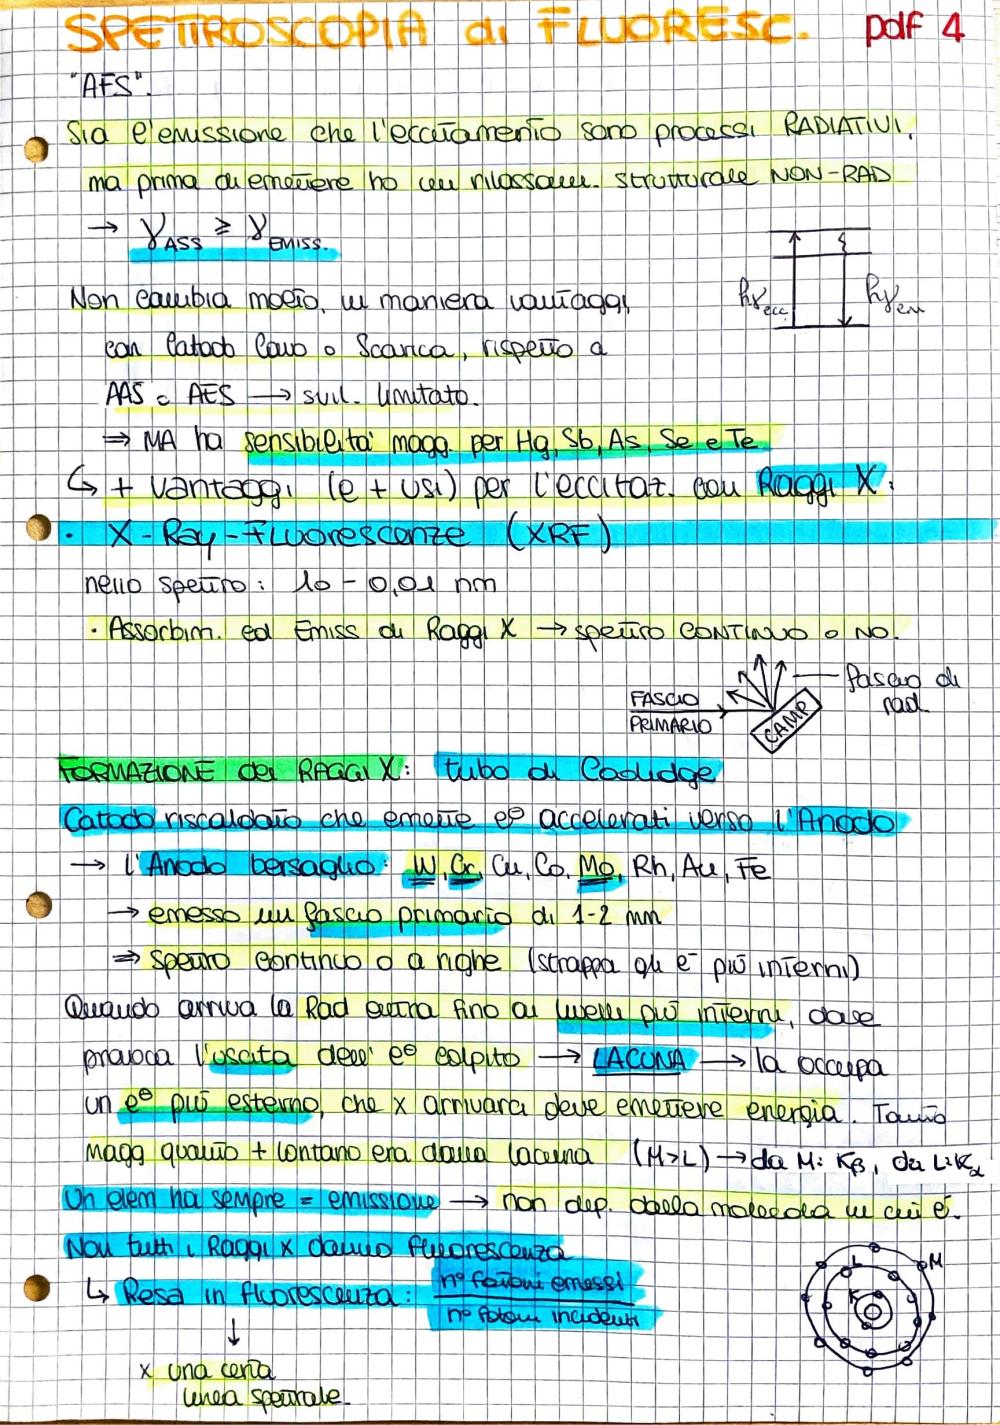 SPETTROSCOPIA di FLUORESC. pdf 4
"AFS".
Sia l'emissione che l'eccitamento sono processi RADIATIVI,
ma prima di emettere ho un rilassam. strutturale NON-RAD
→ γASS ≥ γEMISS.
hγecc. hγem
Non cambia molto, in maniera vantaggi,
con Catodo Cavo o Scarica, rispetto a
AAS e AES → svil. limitato.
⇒ MA ha sensibilità magg. per Hg, Sb, As, Se e Te
↳ + vantaggi (e + usi) per l'eccitaz. con Raggi X.
• X-Ray-Fluorescenze (XRF)
nello spettro: 10 - 0,01 nm
• Assorbim. ed Emiss di Raggi X → spettro CONTINUO o NO.
FASCIO PRIMARIO CAMP fascio di rad.
FORMAZIONE dei RAGGI X: tubo di Coolidge
Catodo riscaldato che emette e⊖ accelerati verso l'Anodo
→ l'Anodo bersaglio: W, Cr, Cu, Co, Mo, Rh, Au, Fe
→ emesso un fascio primario di 1-2 mm
⇒ Spettro continuo o a righe (strappa gli e⁻ più interni)
Quando arriva la Rad entra fino ai livelli più interni, dove
provoca l'uscita dell' e⊖ colpito → LACUNA → la occupa
un e⊖ più esterno, che x arrivarci deve emettere energia. Tanto
magg quanto + lontano era dalla lacuna (M>L) → da M: Kβ, da L: Kα
Un elem ha sempre = emissione → non dip. dalla molecola in cui è.
Non tutti i Raggi x danno fluorescenza
↳ Resa in fluorescenza: n° fotoni emessi
n° fotoni incidenti
K L M
↓
x una certa
linea spettrale.